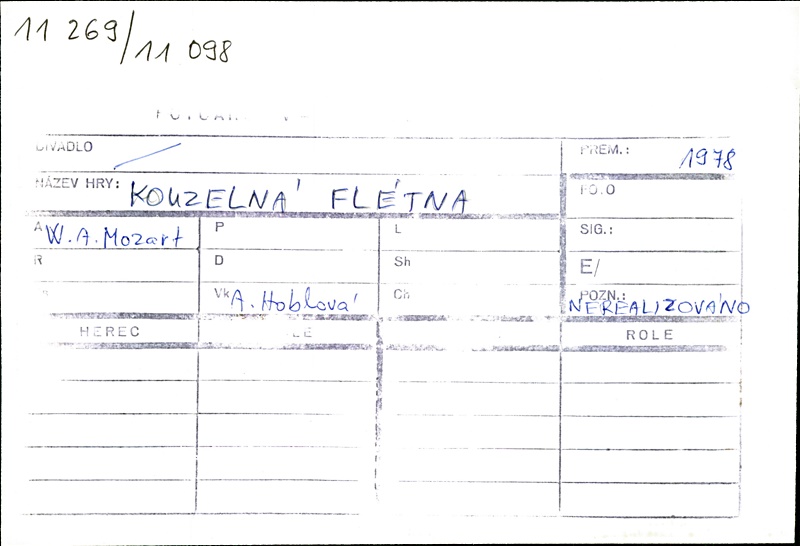 11 269/11 098
DIVADLO
PREM.: 1978
NÁZEV HRY: KOUZELNÁ FLÉTNA
FOTO
A W.A.Mozart P L SIG.:
R D Sh E/
Vk A. Hoblová Ch POZN.: NEREALIZOVÁNO
HEREC ROLE